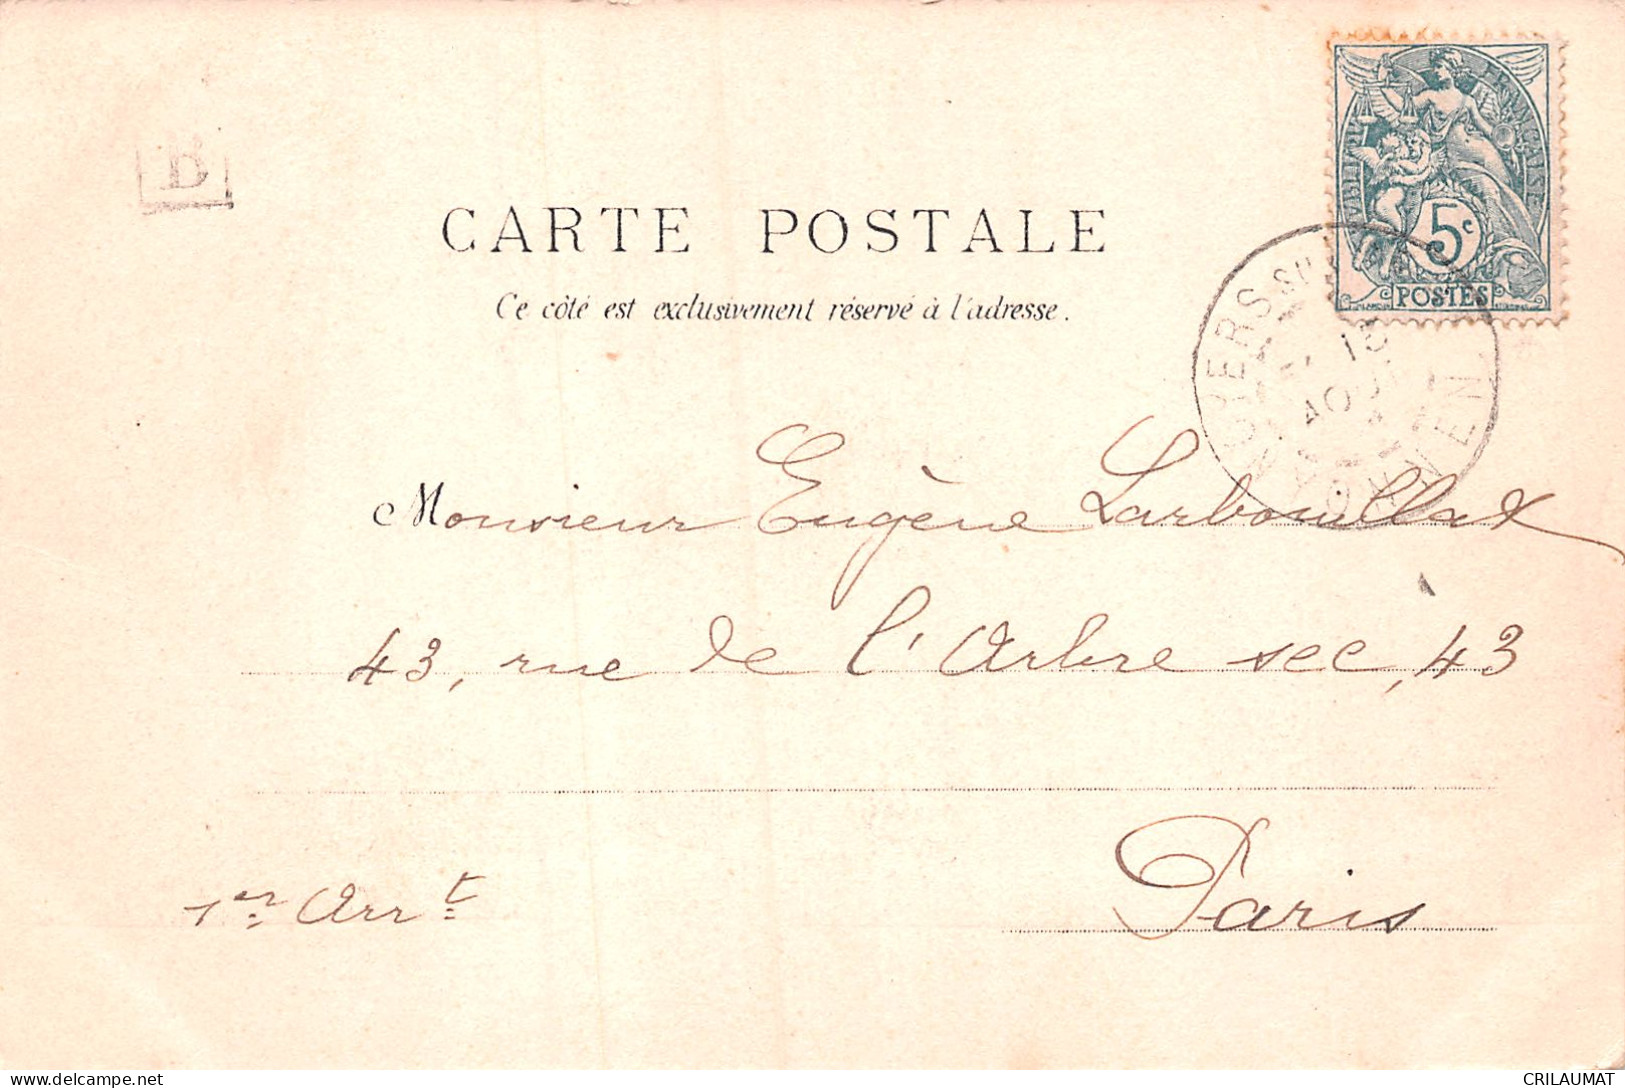 B
RÉPUBLIQUE FRANÇAISE
5c
POSTES
CARTE POSTALE
Ce côté est exclusivement réservé à l'adresse.
10
AOUT
Monsieur Eugène Larbouillat
43, rue de l'Arbre sec, 43
1er Arrt
Paris
delcampe.net
CRILAUMAT